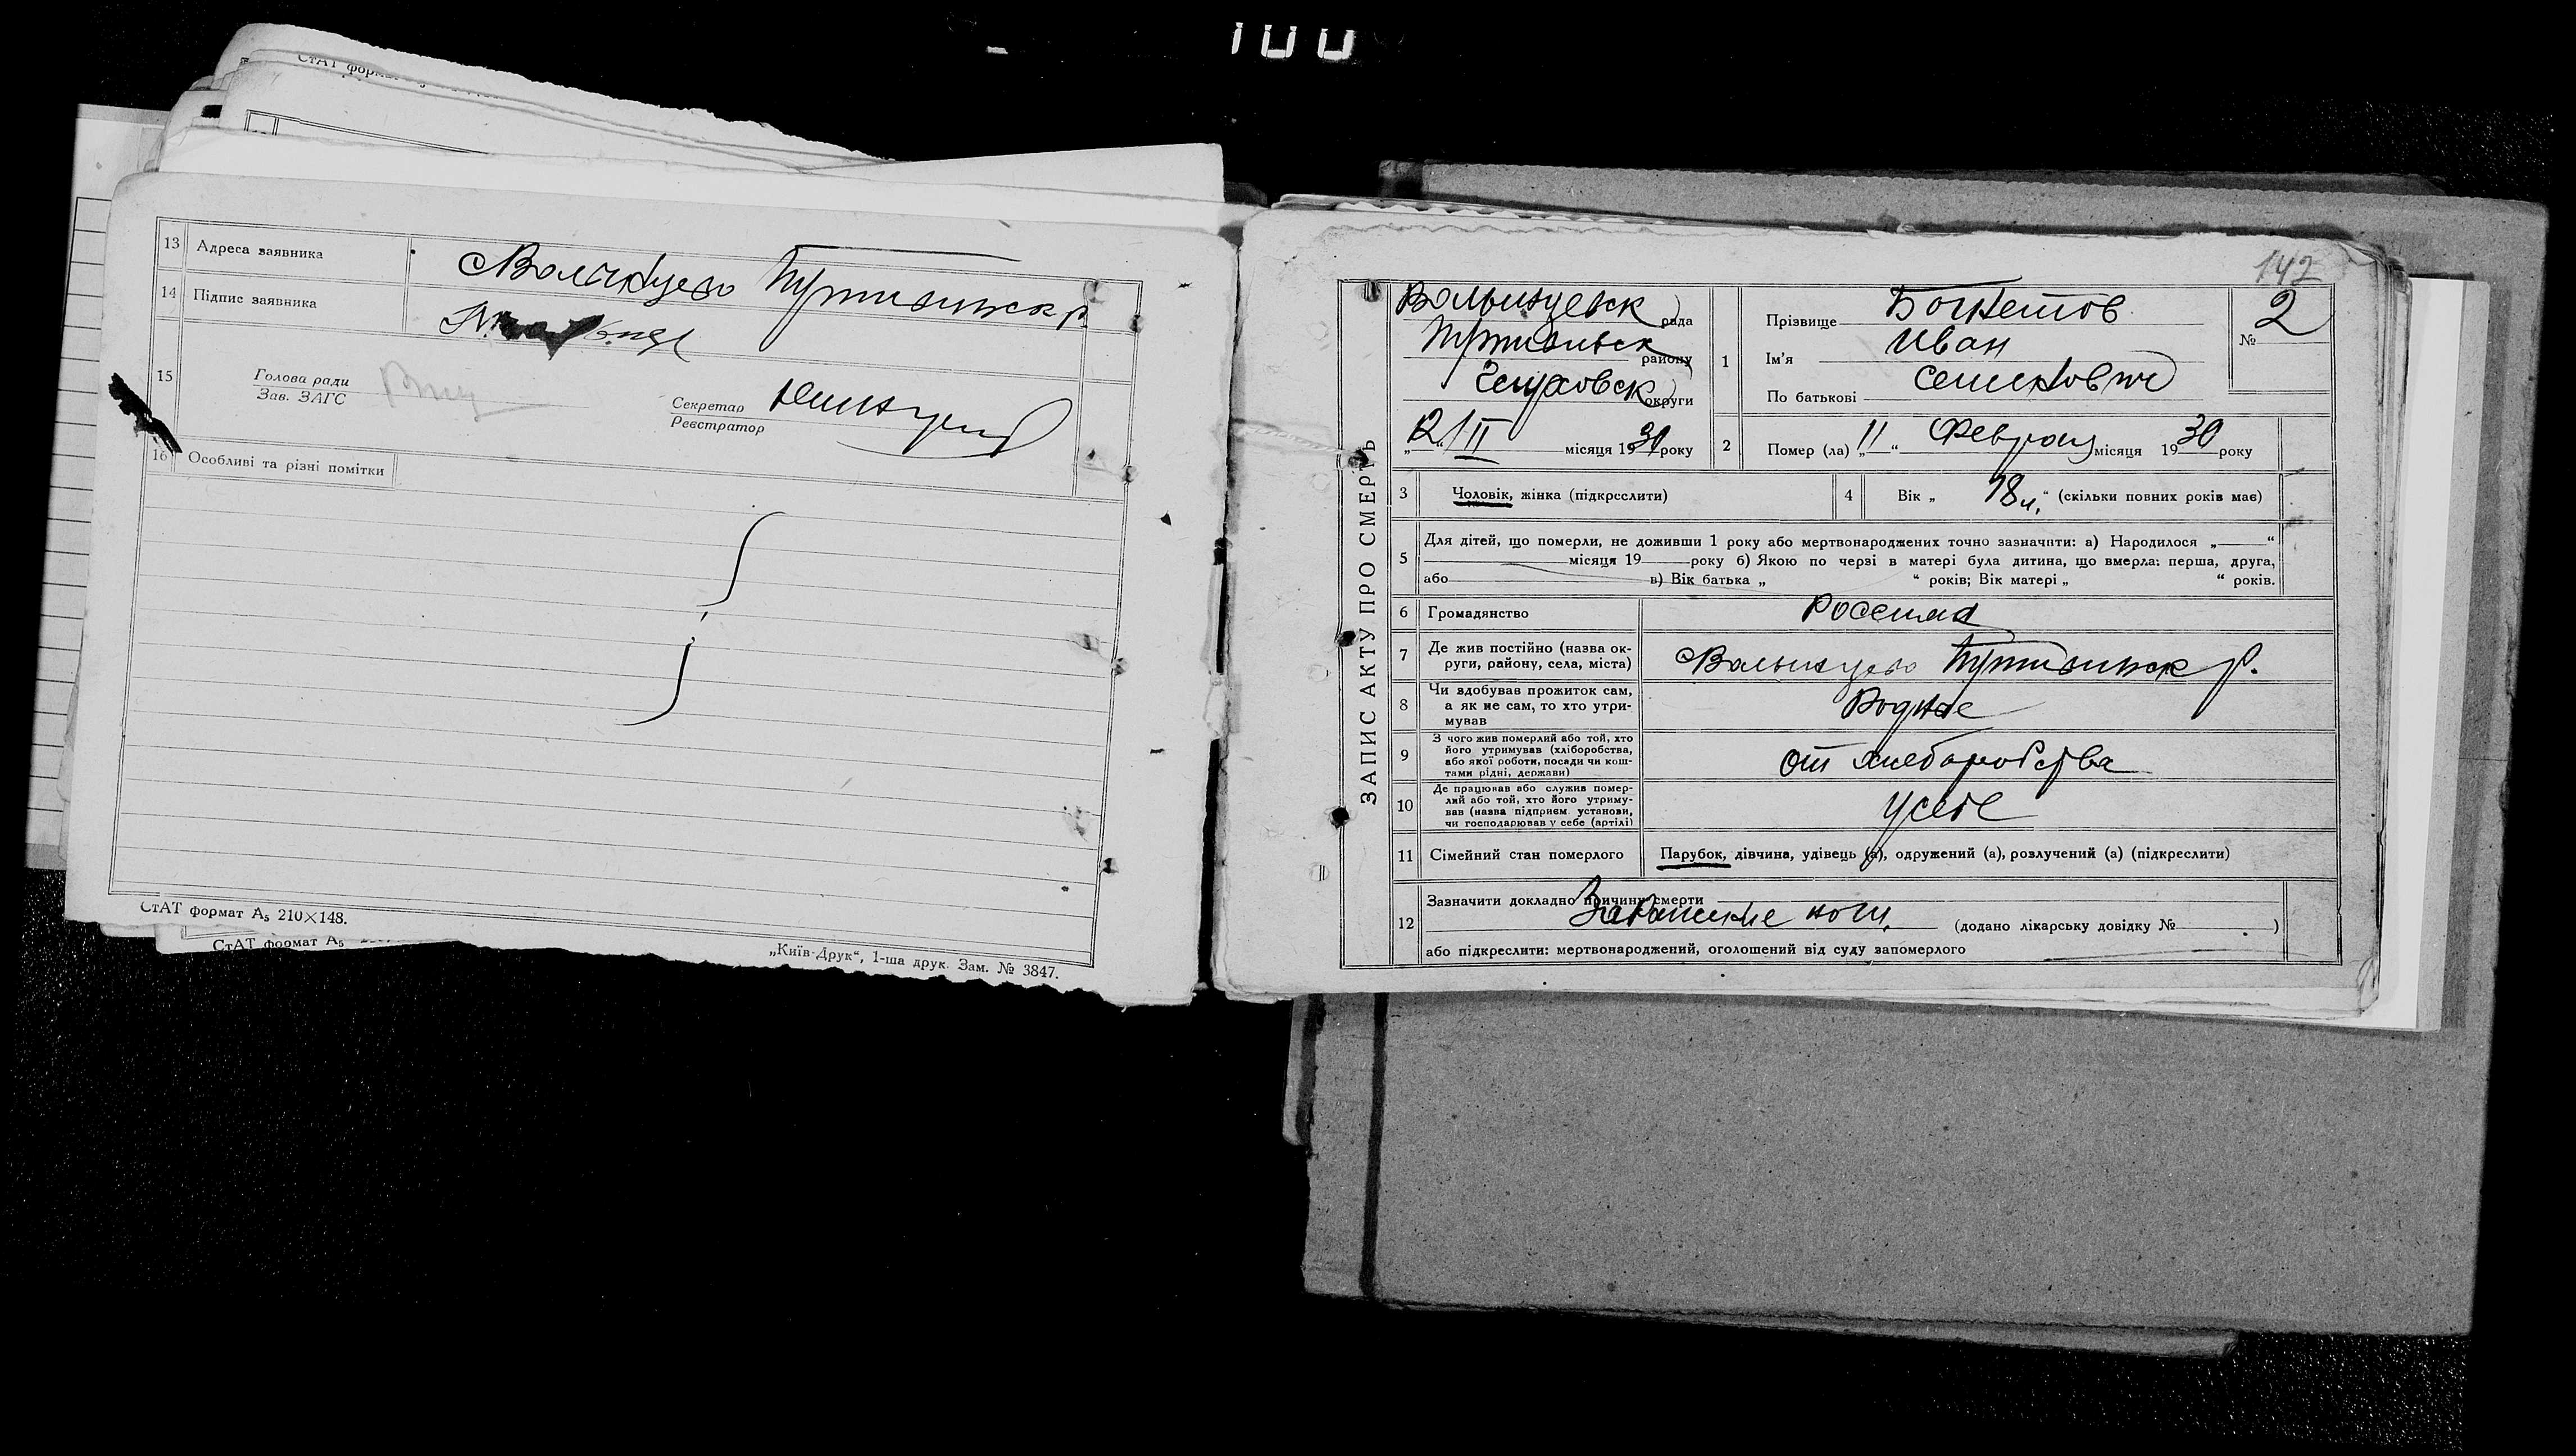 100
СтАТ форм
13 Адреса заявника Волинцево Путивльск р.
14 Підпис заявника
15 Голова ради
Зав. ЗАГС
Секретар
Реєстратор
16 Особливі та різні помітки
СтАТ формат А₅ 210×148.
СтАТ формат А₅
„Київ-Друк“, 1-ша друк. Зам. № 3847.
142
ЗАПИС АКТУ ПРО СМЕРТЬ
Волынцевск рада
Путивльск району
Глуховск округи
„12“ II місяця 1930 року
1 Прізвище
Ім'я Иван
По батькові Семенович
№ 2
2 Помер (ла) „11“ Февраля місяця 1930 року
3 Чоловік, жінка (підкреслити)
4 Вік „ 18 л. “ (скільки повних років має)
5 Для дітей, що померли, не доживши 1 року або мертвонароджених точно зазначити: а) Народилося „ “
місяця 19 року б) Якою по черзі в матері була дитина, що вмерла: перша, друга,
або в) Вік батька „ “ років; Вік матері „ “ років.
6 Громадянство
7 Де жив постійно (назва ок-
руги, району, села, міста) Волынцево Путивльск р.
8 Чи здобував прожиток сам,
а як не сам, то хто утри-
мував
9 З чого жив померлий або той, хто
його утримував (хліборобства,
або якої роботи, посади чи кош-
тами рідні, держави) от хлеборобства
10 Де працював або служив помер-
лий або той, хто його утриму-
вав (назва підприєм. установи,
чи господарював у себе (артілі) у себе
11 Сімейний стан померлого Парубок, дівчина, удівець (а), одружений (а), розлучений (а) (підкреслити)
12 Зазначити докладно причину смерти
(додано лікарську довідку № )
або підкреслити: мертвонароджений, оголошений від суду запомерлого